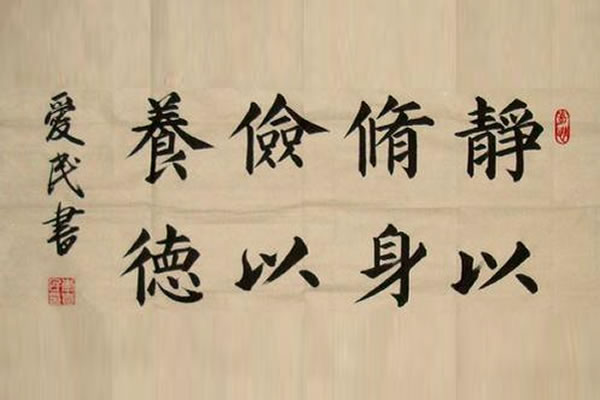 靜以
脩身
儉以
養德
愛民書